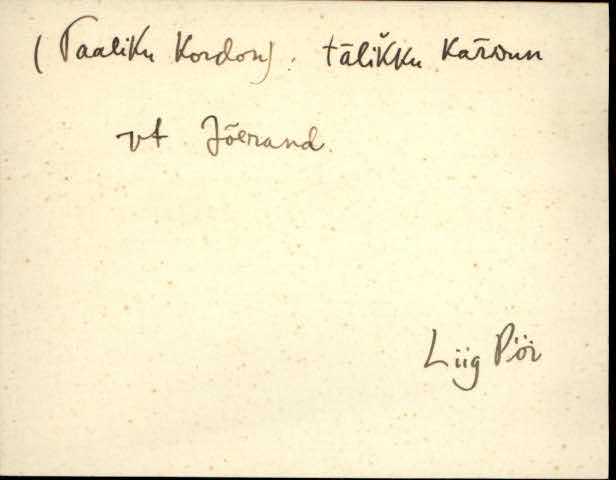 (Taaliku Kordon). tāliǩku kārdun
vt Jõerand.
Liig Pöi